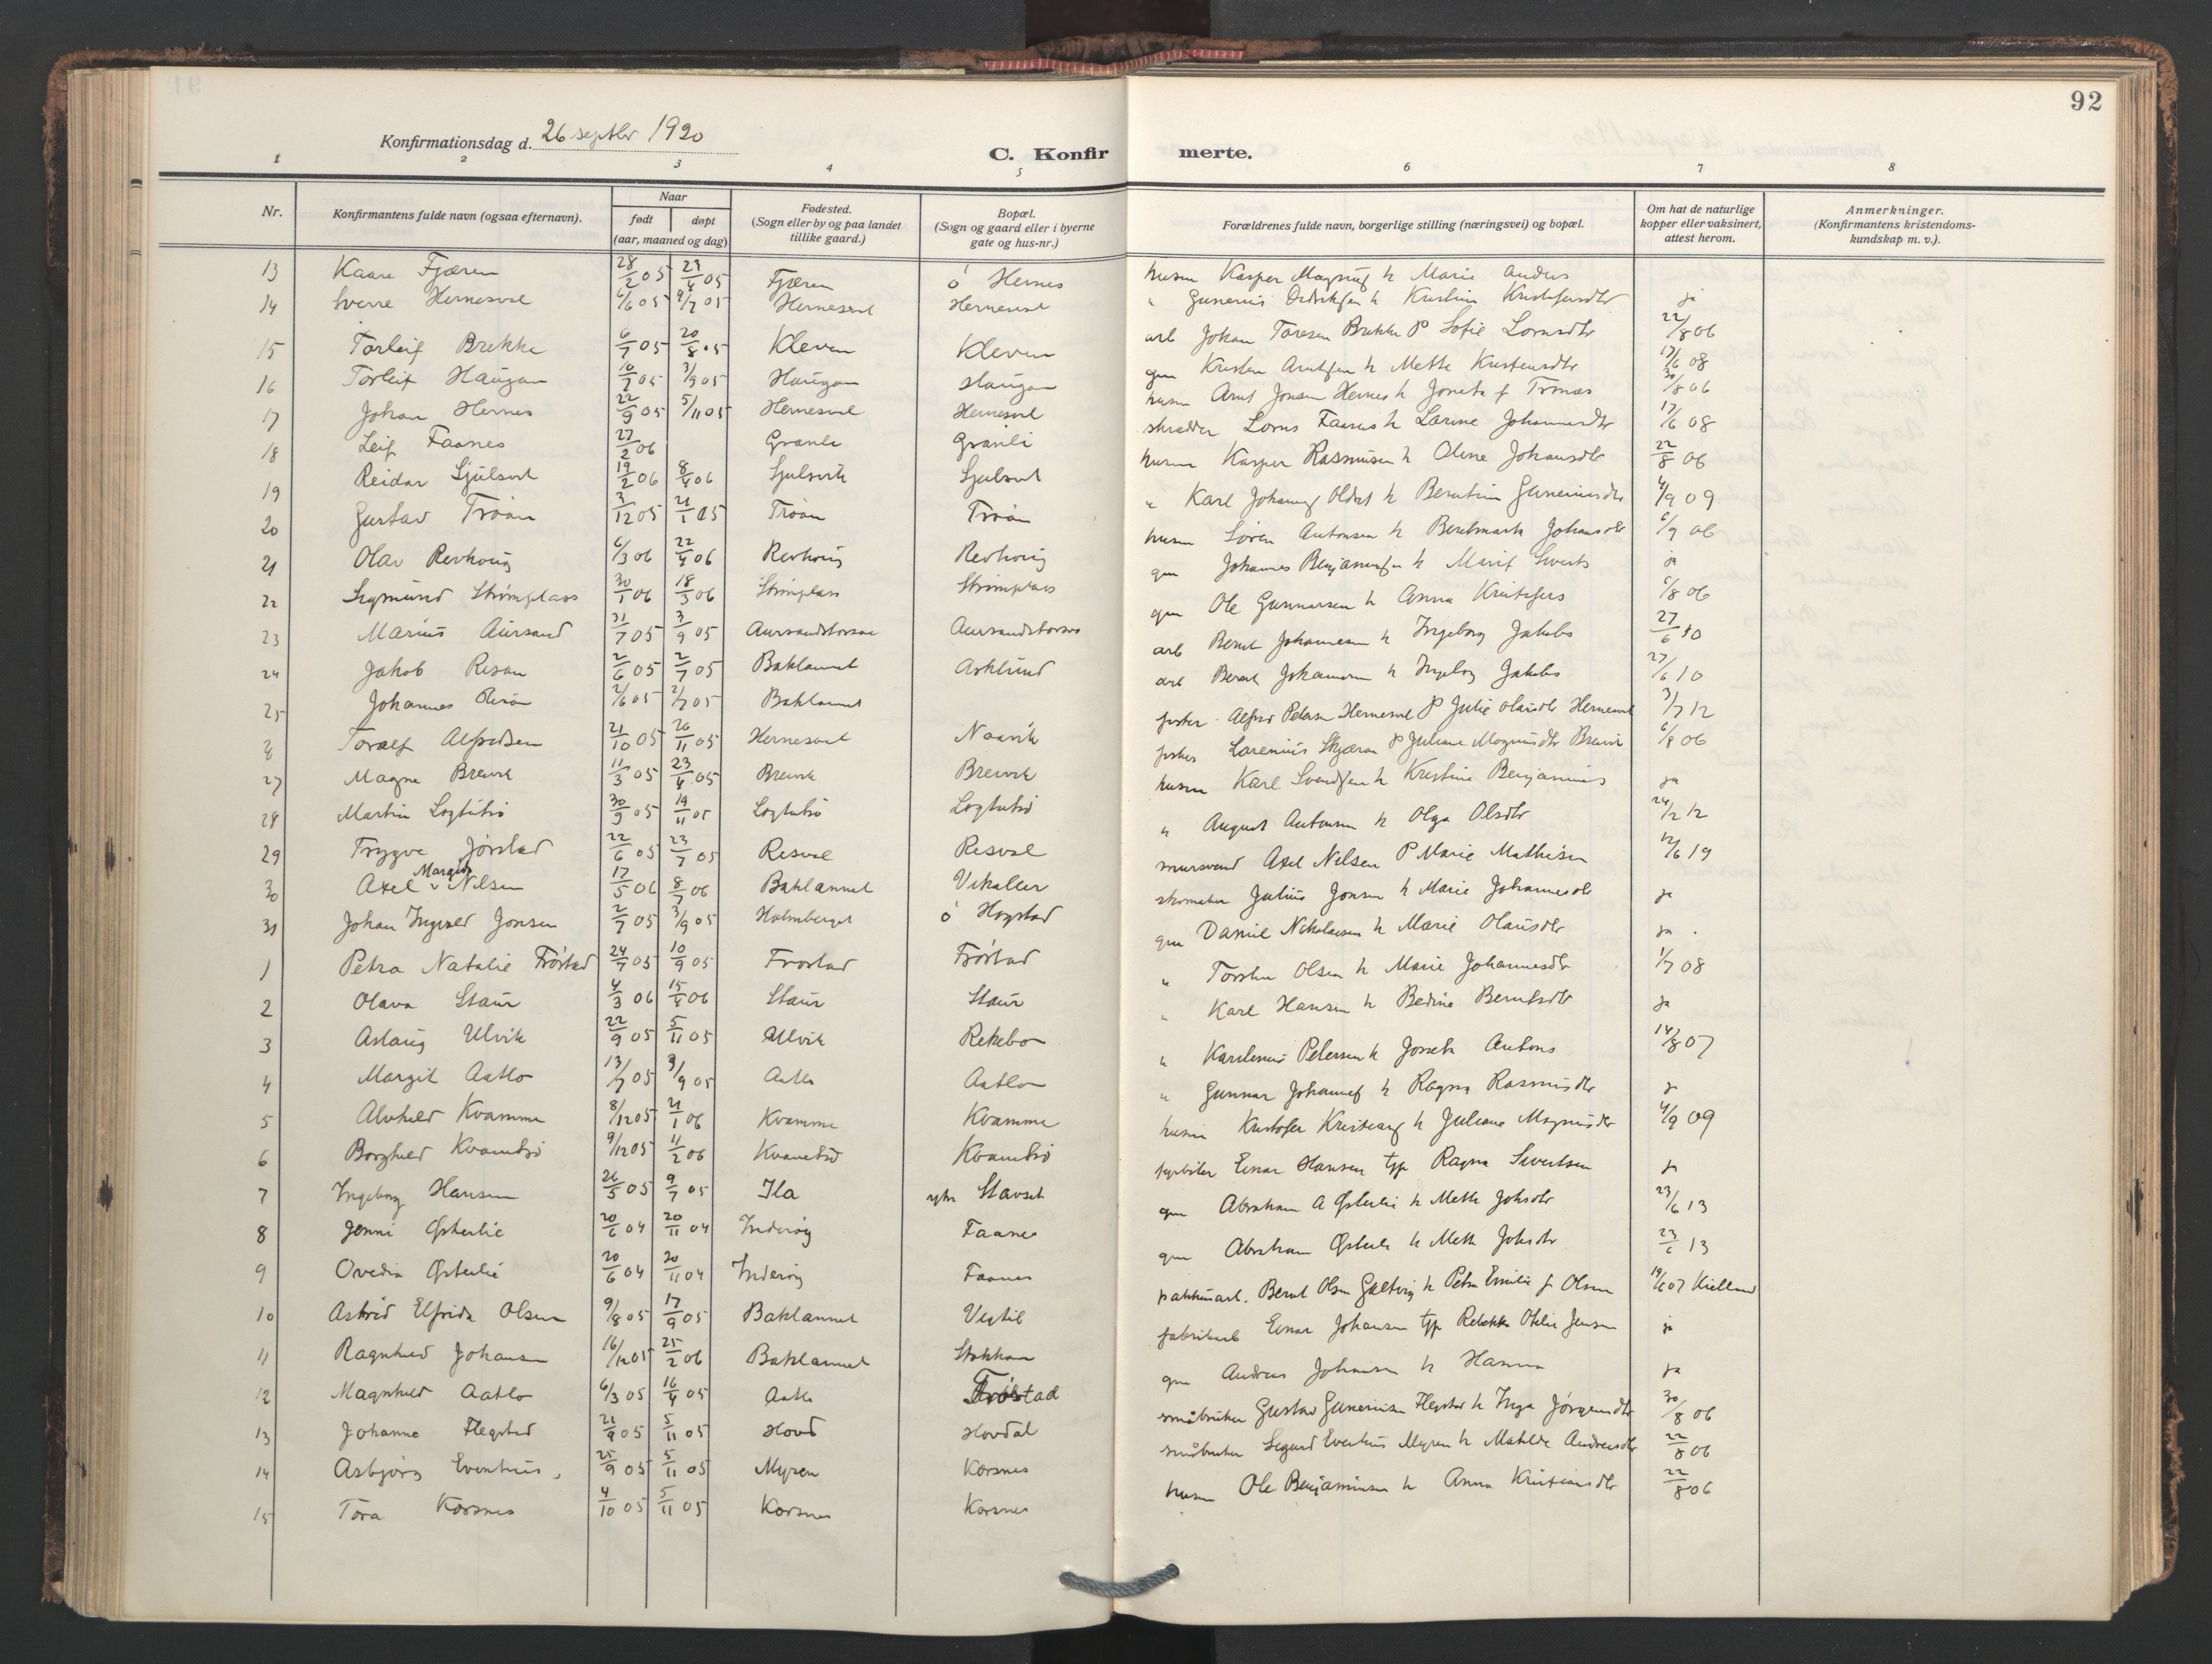 92
Konfirmationsdag d. 26 septbr 1920
C. Konfirmerte.
1 2 3 4 5 6 7 8
Nr.
Konfirmantens fulde navn (ogsaa efternavn).
Naar
født døpt
(aar, maaned og dag)
Fødested.
(Sogn eller by og paa landet
tillike gaard.)
Bopæl.
(Sogn og gaard eller i byerne
gate og hus-nr.)
Forældrenes fulde navn, borgerlige stilling (næringsvei) og bopæl.
Om hat de naturlige
kopper eller vaksinert,
attest herom.
Anmerkninger.
(Konfirmantens kristendoms-
kundskap m. v.).
13 Kaare Fjæren 28/2 05 24/4 05 Fjæren ó Hernes husm Kasper Marie Anders
14 Sverre Hernesvol 6/6 05 9/7 05 Hernesvol Hernesvol " Gunerius h Kristine ja
15 Torleif Brekke 6/7 05 20/8 05 Kleven Kleven arb Johan Toresen Brekke P Sofie Lornsdtr 22/8 06
16 Torleif Haugan 10/7 05 3/9 05 Haugan Haugan gm Kristen Arntsen h Mette Kristensdtr 17/6 08
17 Johan Hernes 22/9 05 5/11 05 Hernesvol Hernesvol husm Arnt Jonsen Hernes h f Trones 30/8 06
18 Leif Faanes 27/2 06 Granli Granli skrædder Lorns Faanes h Larine Johannesdtr 17/6 08
19 Reidar Sjulsvol 19/2 06 8/4 06 Sjulsvik Sjulsvol husm Kasper Rasmusen h Oline Johansdtr 22/8 06
20 Gustav Trøan 3/12 05 21/1 05 Trøan Trøan " Karl h Gunneriusdtr 4/9 09
21 Olav Revhoug 6/3 06 22/4 06 Revhoug Revhoug husm Søren Antonsen h Beretmarta Johansdtr 6/9 06
22 Sigmund Strømplass 30/1 06 18/3 06 Strømplass Strømplass gm Johannes Benjaminsen h Marit Siverts ja
23 Marius Aursand 31/7 05 3/9 05 Aursand gm Ole Gunnarsen h Anna 6/8 06
24 Jakob Risan 2/6 05 2/7 05 Baklannet Asklund arb Bernt Johannesen h Ingeborg Jakobs 27/6 10
25 Johannes Risan 2/6 05 2/7 05 Baklannet arb Bernt Johannesen h Ingeborg Jakobs 27/6 10
Toralf Alfredsen 21/10 05 26/11 05 Hernesvol Naavik fisker Alfred Petersen Hernesvol P Julie Olausdtr Hernesvol 3/7 12
27 Magne Brevik 11/3 05 23/4 05 Brevik Brevik fisker Larenius Skjæran P Juliane Magnusdtr Brevik 6/8 06
28 Martin Logtubø 30/9 05 19/11 05 Logtubø Logtubø husm Karl Svendsen h Kristine Benjamins ja
29 Trygve Jørstad 22/6 05 23/7 05 Risvol Risvol " August Antonsen h Olga Olsdtr 24/2 12
30 Axel Nilsen 17/5 06 8/7 06 Baklannet Vikaller mursvend Axel Nilsen P Marie Mathisen 12/6 19
31 Johan Ingvald Jonsen 2/7 05 3/9 05 Holmberget ó Hogstad skomaker Julius Jonsen h Marie Johannesdtr ja
1 Petra Natalie Frøstad 24/7 05 10/9 05 Frostad Frøstad gm Daniel Nikolaisen h Marie Olausdtr ja .
2 Olava Staur 4/3 06 15/4 06 Staur Staur " Torsten Olsen h Marie Johannesdtr 1/7 08
3 Aslaug Ulvik 22/9 05 5/11 05 Ulvik Rekebo " Karl Hansen h Bedine Berntsdtr ja
4 Margit Aatlo 13/7 05 3/9 05 Aatlo Aatlo " Karelenius Petersen h Joseta Antons 14/8 07
5 Alvhild Kvamme 8/12 05 21/1 06 Kvamme Kvamme " Gunnar h Ragna Rasmusdtr ja
6 Borghild Kvambø 9/12 05 11/2 06 Kvambø Kvambø husm Kristofer h Juliane Magnusdtr 4/9 09
7 Ingeborg Hansen 26/5 05 9/7 05 Ila Stavset Einar Hansen Ragna Sivertsen ja
8 Jenni Østerlie 20/6 04 20/11 04 Inderøy Faanes gm Abraham A Østerlie h Mette Johsdtr 23/6 13
9 Ovedia Østerlie 20/6 04 20/11 04 Inderøy Faanes gm Abraham Østerlie h Mette Johsdtr 23/6 13
10 Astrid Elfrida Olsen 9/8 05 17/9 05 Baklannet Vigtil Bernt Olsen h Petra Emilie f Olsen 19/6 07 Kielland
11 Ragnhild Johansen 16/12 05 25/2 06 Baklannet Stokkan fabrikarb Einar Johansen Rebekka Otilie Jensen ja
12 Magnhild Aatlo 6/3 05 16/4 05 Aatlo Frøstad gm Andreas Johansen h Hanna ja
13 Johanne Flegstad 21/9 05 5/11 05 Hovd Hovdal småbruker Gustav Gunneriusen Flegstad h Inga Jørgensdtr 30/8 06
14 Asbjørg Eventius 25/9 05 5/11 05 Myren Korsnes småbruker Sigurd Eventius Myren h Matilde Andreasdtr 22/8 06
15 Tora Korsnes 4/10 05 5/11 05 Korsnes Korsnes husm Ole Benjaminsen h Anna Kristiansdtr 22/8 06